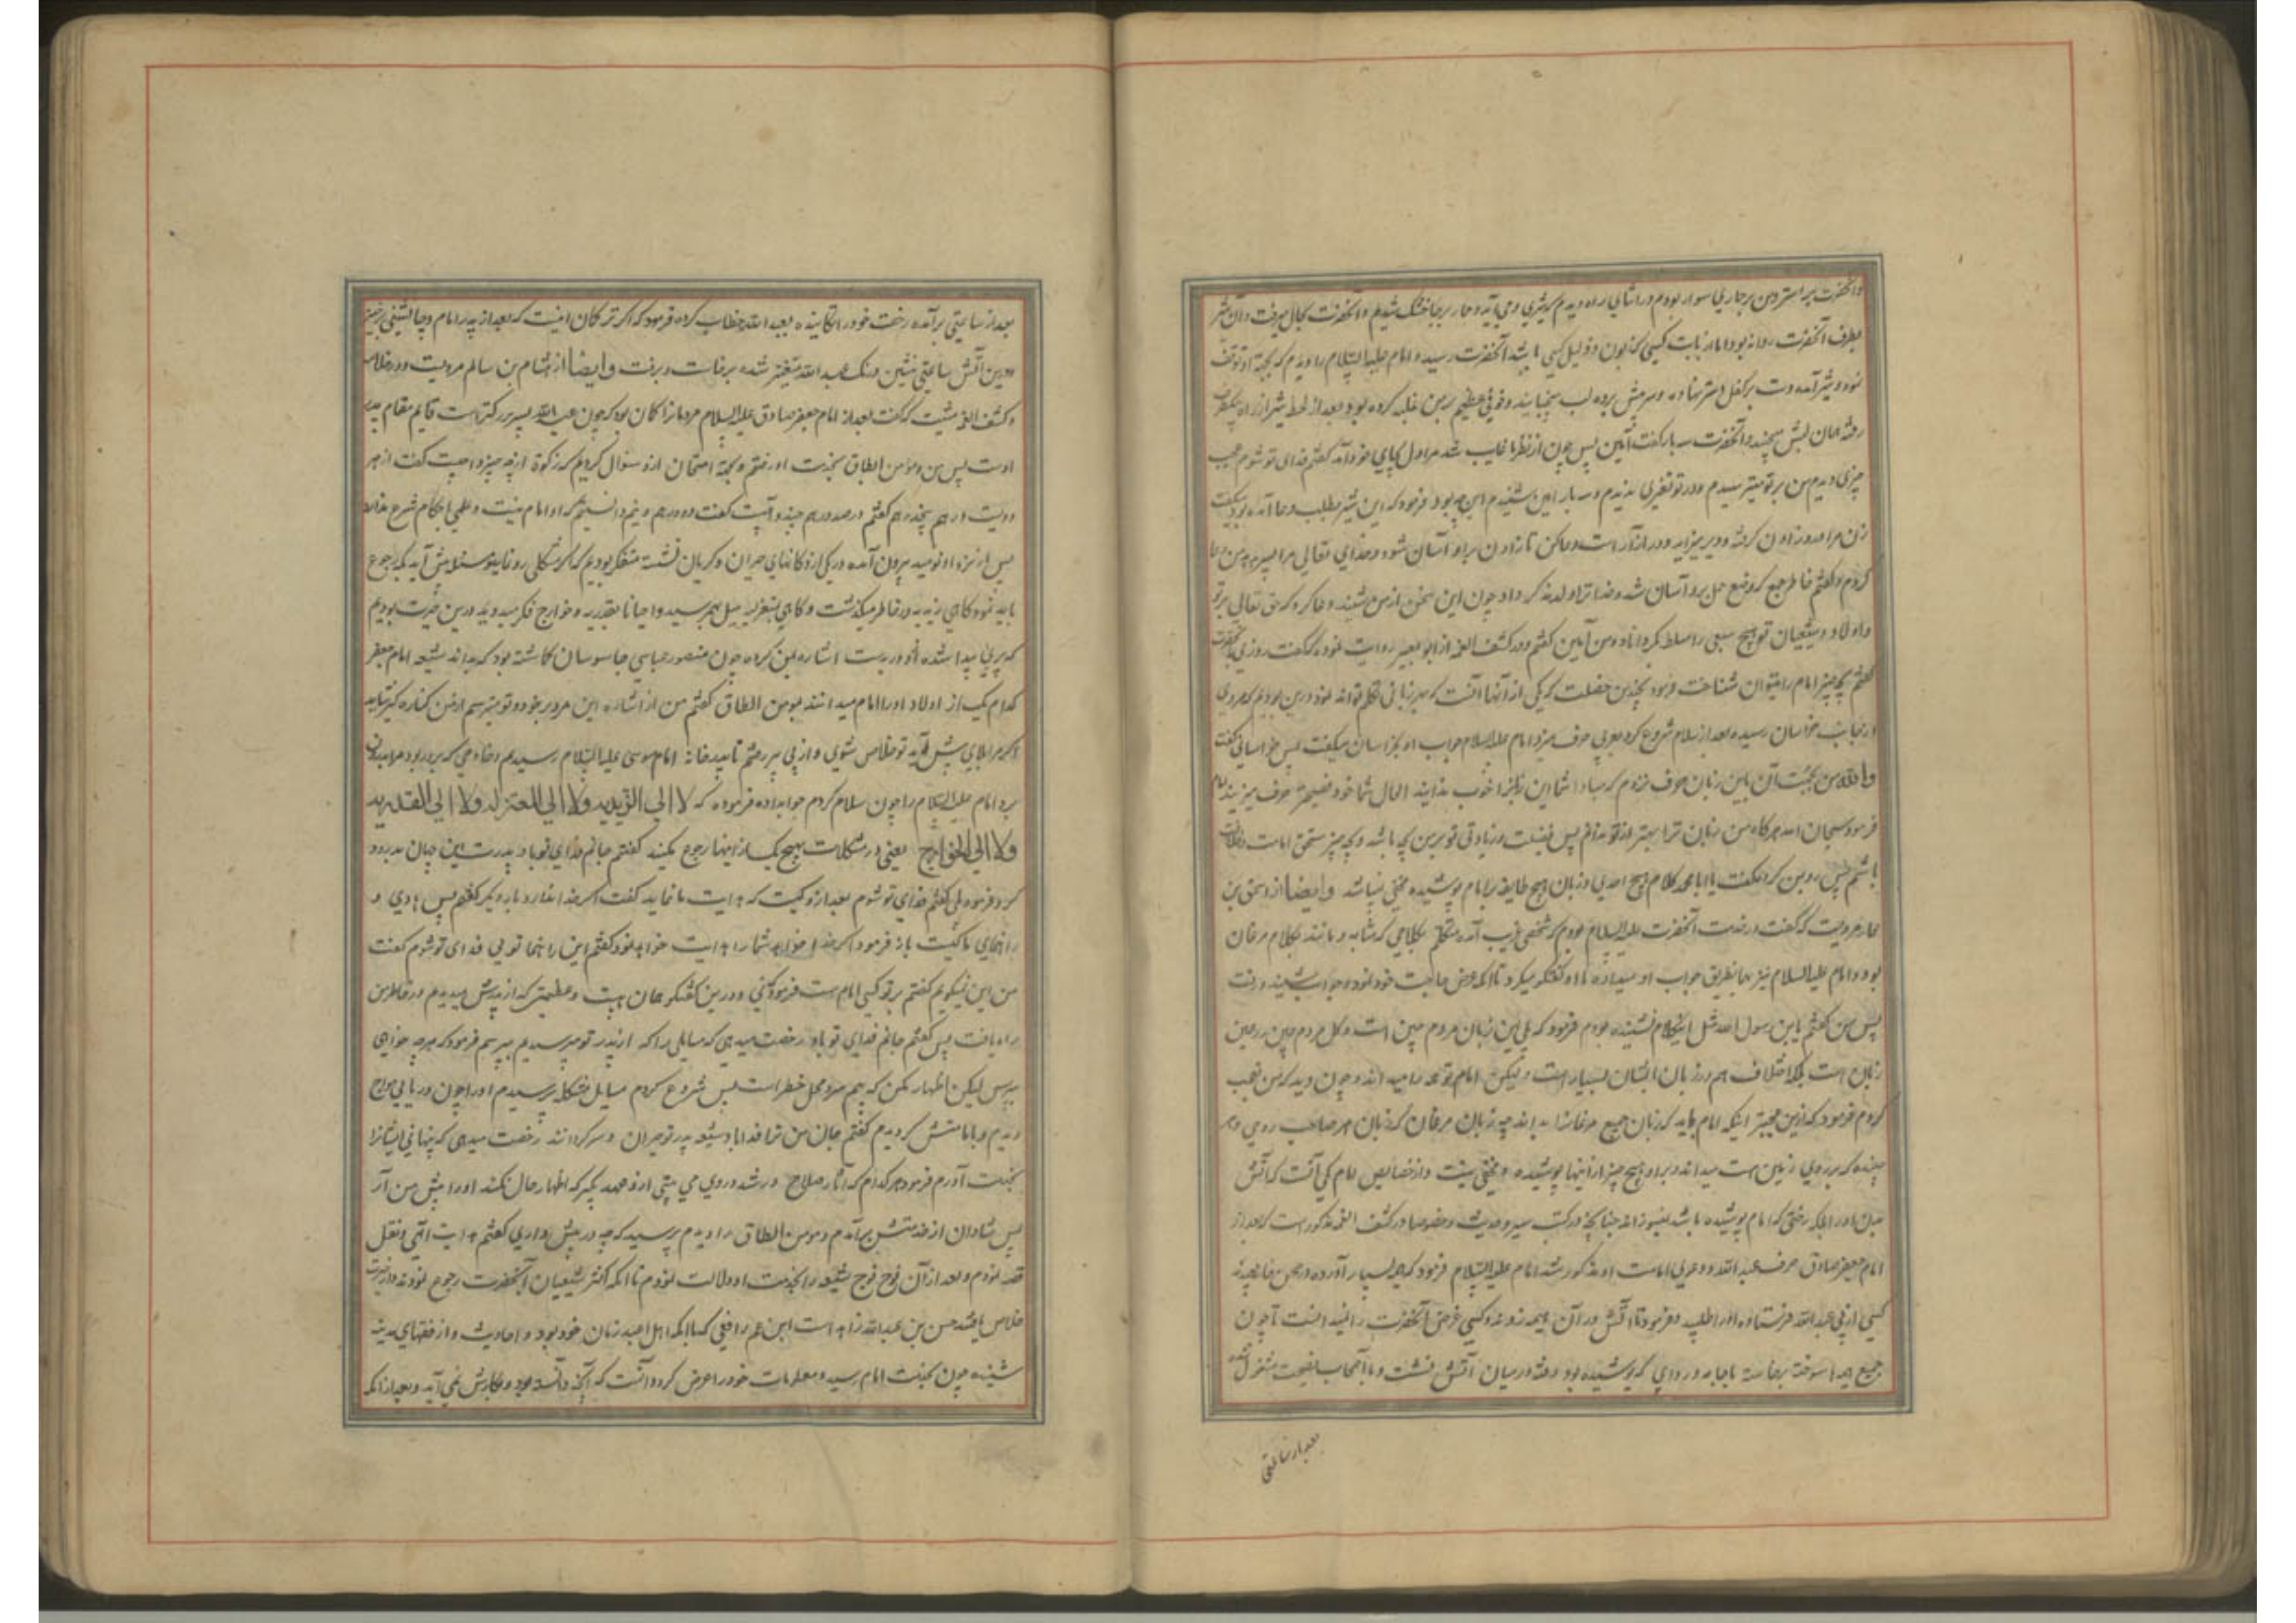 وآنحضرت بر استر ومن برحماری سوار بودم در اثنای راه دیدم که شیری می آید وحمار برجا خشک شد وآنحضرت بحال میرفت وآن شیر
بطرف آنحضرت روانه بود اما از بابت کسی که زبون وذلیل کسی باشد آنحضرت رسید وامام علیه السلام را دیدم که بجهة او توقف
نمود وشیر آمده دست بر کفل استر نهاده وسر پیش برده لب میجنبانید وخوفی عظیم بر من غلبه کرده بود وبعد از لحظه شیر از راه یکطرف
رفته همان لبش میجنبید وآنحضرت سه بار گفت آمین پس چون از نظر ما غایب شد مرا دل بجای خود آمد گفتم فدای تو شوم عجب
چیزی دیدم من بر تو میترسیدم ودر تو تغیری ندیدم وسه بار آمین شنیدم این چه بود فرمود که این شیر بطلب دعا آمده بود میگفت
زن مرا درد زادن گرفته ودیر میزاید ودر آزار است دعا کن تا زادن بر او آسان شود وخدای تعالی مرا پسر دهد من دعا
کردم وگفتم خاطر جمع کن وضع حمل بر او آسان شد وخدا ترا ولد نر کرد او چون این سخن از من شنید دعا کرد که حق تعالی بر تو
واولاد وشیعیان تو هیچ سبعی را مسلط نگرداناد ومن آمین گفتم ودر کشف الغمه از ابو بصیر روایت نموده که گفت روزی بآنحضرت
گفتم بچه چیز امام را میتوان شناخت فرمود بچندین خصلت که یکی از آنها آنست که بهر زبانی تکلم تواند نمود درین بودیم که مردی
از جانب خراسان رسیده بعد از سلام شروع کرد بعربی حرف میزد وامام علیه السلام جواب او بخراسان میگفت پس خراسانی گفت
والله من بجهت آن باین زبان حرف نزدم که مبادا شما این زبانرا خوب ندانید الحال شما خود فصیحتر حرف میزنید امام
فرمود سبحان الله هرگاه من زبان ترا بهتر از تو ندانم پس فضیلت وزیادتی تو بر من چه باشد وبچه چیز مستحق امامت وخلافت
باشم پس رو بمن کرد گفت یا ابا محمد کلام هیچ احدی وزبان هیچ طایفه بر امام پوشیده ومخفی نمیباشد وایضا از اسحق بن
عمار مرویست که گفت در خدمت آنحضرت علیه السلام بودم که شخصی غریب آمده متکلم بکلامی که مشابه ومانند بکلام مرغان
بود وامام علیه السلام نیز بهمانطریق جواب او میداد وبا او گفتگو میکرد تا آنکه عرض حاجت خود نمود وجواب شنید ورفت
پس من گفتم یابن رسول الله مثل این کلام نشنیده بودم فرمود که بلی این زبان مردم چین است وکل مردم چین نه همین
زبان است بلکه اختلاف هم در زبان ایشان بسیار است ولیکن امام همه را میداند وچون دید که من تعجب
کردم فرمود که ازین عجبتر اینکه امام باید که زبان جمیع مرغان را بداند چه زبان مرغان که زبان هر صاحب روحی وهر
جنبنده که بر روی زمین است میداند وبر او هیچ چیز از اینها پوشیده ومخفی نیست واز خصایص امام یکی آنست که آتش
بدن او را بلکه رختی که امام پوشیده باشد نمیسوزاند چنانچه در کتب سیر وحدیث وخصوصا در کشف الغمه مذکور است که بعد از
امام جعفر صادق حرف عبدالله ودعوی امامت او مذکور شد امام علیه السلام فرمود که هیمه بسیار آورده در صحن خانه چیدند
کسی از پی عبدالله فرستاده او را طلبید وفرمود تا آتش در آن هیمه زدند وکسی غرض آنحضرت را نمیدانست تا چون
جمیع هیمه ها سوخته برخاسته با جامه وردای که پوشیده بود رفته در میان آتش نشست وبا اصحاب بصحبت مشغول شد
بعد از ساعتی
بعد از ساعتی برآمده رخت خود را تکانیده بعبدالله خطاب کرده فرمود که اگر ترا گمان اینست که بعد از پدر امام وجانشینی برخیز
ودرین آتش ساعتی بنشین رنگ عبدالله متغیر شده برخاست وبرفت وایضا از هشام بن سالم مرویست ودر خلاصه
وکشف الغمه مثبت که گفت بعد از امام جعفر صادق علیه السلام مردمانرا گمان بود که چون عبدالله پسر بزرگتر است قایم مقام پدر
اوست پس من ومؤمن الطاق بخدمت او رفتیم وبجهة امتحان ازو سؤال کردیم که زکوة از چه چیز واجبست گفت از هر
دویست درهم پنج درهم گفتم در صد درهم چند واجبست گفت دو درهم ونیم دانستیم که او امام نیست وعلمی باحکام شرع ندارد
پس از نزد او نومید بیرون آمده در یکی از دکانهای حیران وگریان نشسته متفکر بودیم که اگر مشکلی رو نماید ومسئله پیش آید بکه رجوع
باید نمود گاهی زیدیه در خاطر میگذشت وگاهی بمعتزله میل بهم میرسید واحیانا بقدریه وخوارج فکر میدوید درین حیرت بودیم
که پیری پیدا شده از دور بدست اشاره بمن کرده چون منصور عباسی جاسوسان گماشته بود که بداند شیعه امام جعفر
کدام یک از اولاد او را امام میدانند بمومن الطاق گفتم من از اشاره این مرد بر خود وتو میترسم از من کناره گیر شاید
اگر مرا بلای پیش آید تو خلاص شوی واز پی پیر رفتم تا بدر خانه امام موسی علیه السلام رسیدیم وخادمی که بر در بود مرا بدرون
برد امام علیه السلام را چون سلام کردم جوابداده فرموده که لا الی الزیدیه ولا الی المعتزله ولا الی القدریه
ولا الی الخوارج یعنی در مشکلات بهیچ یک از اینها رجوع نکنید گفتم جانم فدای تو باد پدرت ازین جهان بدرود
کرد فرمود بلی گفتم فدای تو شوم بعد ازو کیست که هدایت ما نماید گفت اگر خدا اراده بار دیگر گفتم پس هادی و
راهنمای ما کیست باز فرمود اگر خدا خواهد شما را هدایت خواهد نمود گفتم این راهنما تویی فدای تو شوم گفت
من این نمیگویم گفتم بر تو کسی امام هست فرمود که نی ودرین گفتگو همان هیبت وعظمتی که از پدرش میدیدم در خاطر من
راه یافت پس گفتم جانم فدای تو باد رخصت میدهی که مسایلی را که از پدر تو میپرسیدیم بپرسم فرمود که هرچه خواهی
بپرس لیکن اظهار مکن که بیم سر ومحل خطر است پس شروع کردم مسایل مشکله پرسیدم او را چون دریایی مواج
دیدم وبامامتش گرویدم گفتم جان من ترا فدا باد شیعه پدر تو حیران وسرگردانند رخصت میدهی که پنهانی ایشانرا
بخدمت آورم فرمود هر کدام که آثار صلاح ورشد در وی می بینی ازو عهد بگیر که اظهار حال نکند او را پیش من آر
پس شادان از خدمتش برآمدم ومومن الطاق را دیدم پرسید که چه در پیش داری گفتم هدایت الهی ونقل
قصه نمودم وبعد از آن فوج فوج شیعه را بخدمت او دلالت نمودم تا آنکه اکثر شیعیان آنحضرت رجوع نمودند واز حیرت
خلاص یافتند حسن بن عبدالله زاهد است ابن عم رافعی که با آنکه اهل اعبد زمان خود بود واحادیث واز فقهای مدینه
شنیده چون بخدمت امام رسید ومعلومات خود را عرض کرد دانست که آنچه دانسته بود بکارش نمی آید وبعد از آنکه